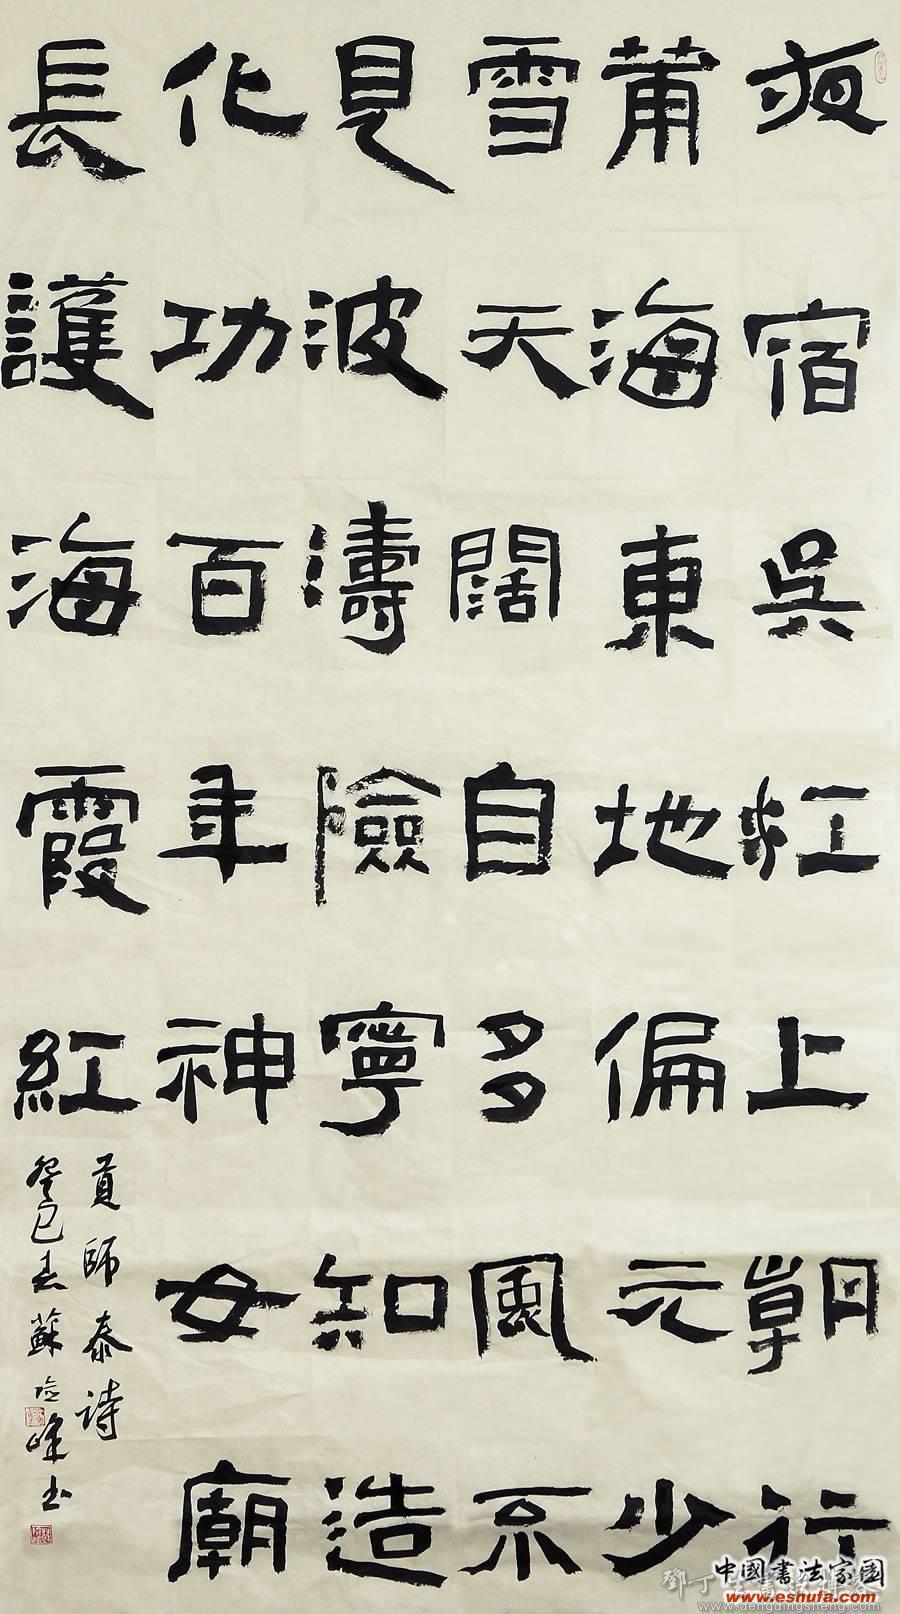 夜宿吳江上朝行
莆海東地偏元少
雪天闊自多風不
見波濤險寧知造
化功百年神女廟
長護海霞紅
貢師泰詩
癸巳春蘇
峰書
中國書法家園
www.eshufa.com
www.dengdingsheng.com